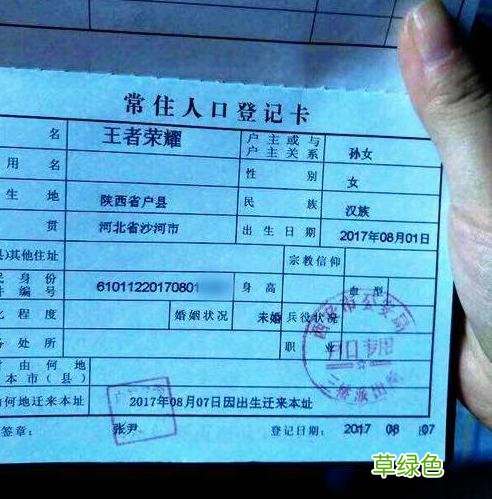 常住人口登记卡
名 王者荣耀 户主或与户主关系 孙女
用名 性别 女
生地 陕西省户县 民族 汉族
贯 河北省沙河市 出生日期 2017年08月01日
其他住址 宗教信仰
民身份件编号 61011220170801 身高 血型
化程度 婚姻状况 未婚 兵役状况
务处所 职业
由何地
本市（县）
何地迁来本址 2017年08月07日因出生迁来本址
签章： 张尹 登记日期： 2017 08 07
草绿色